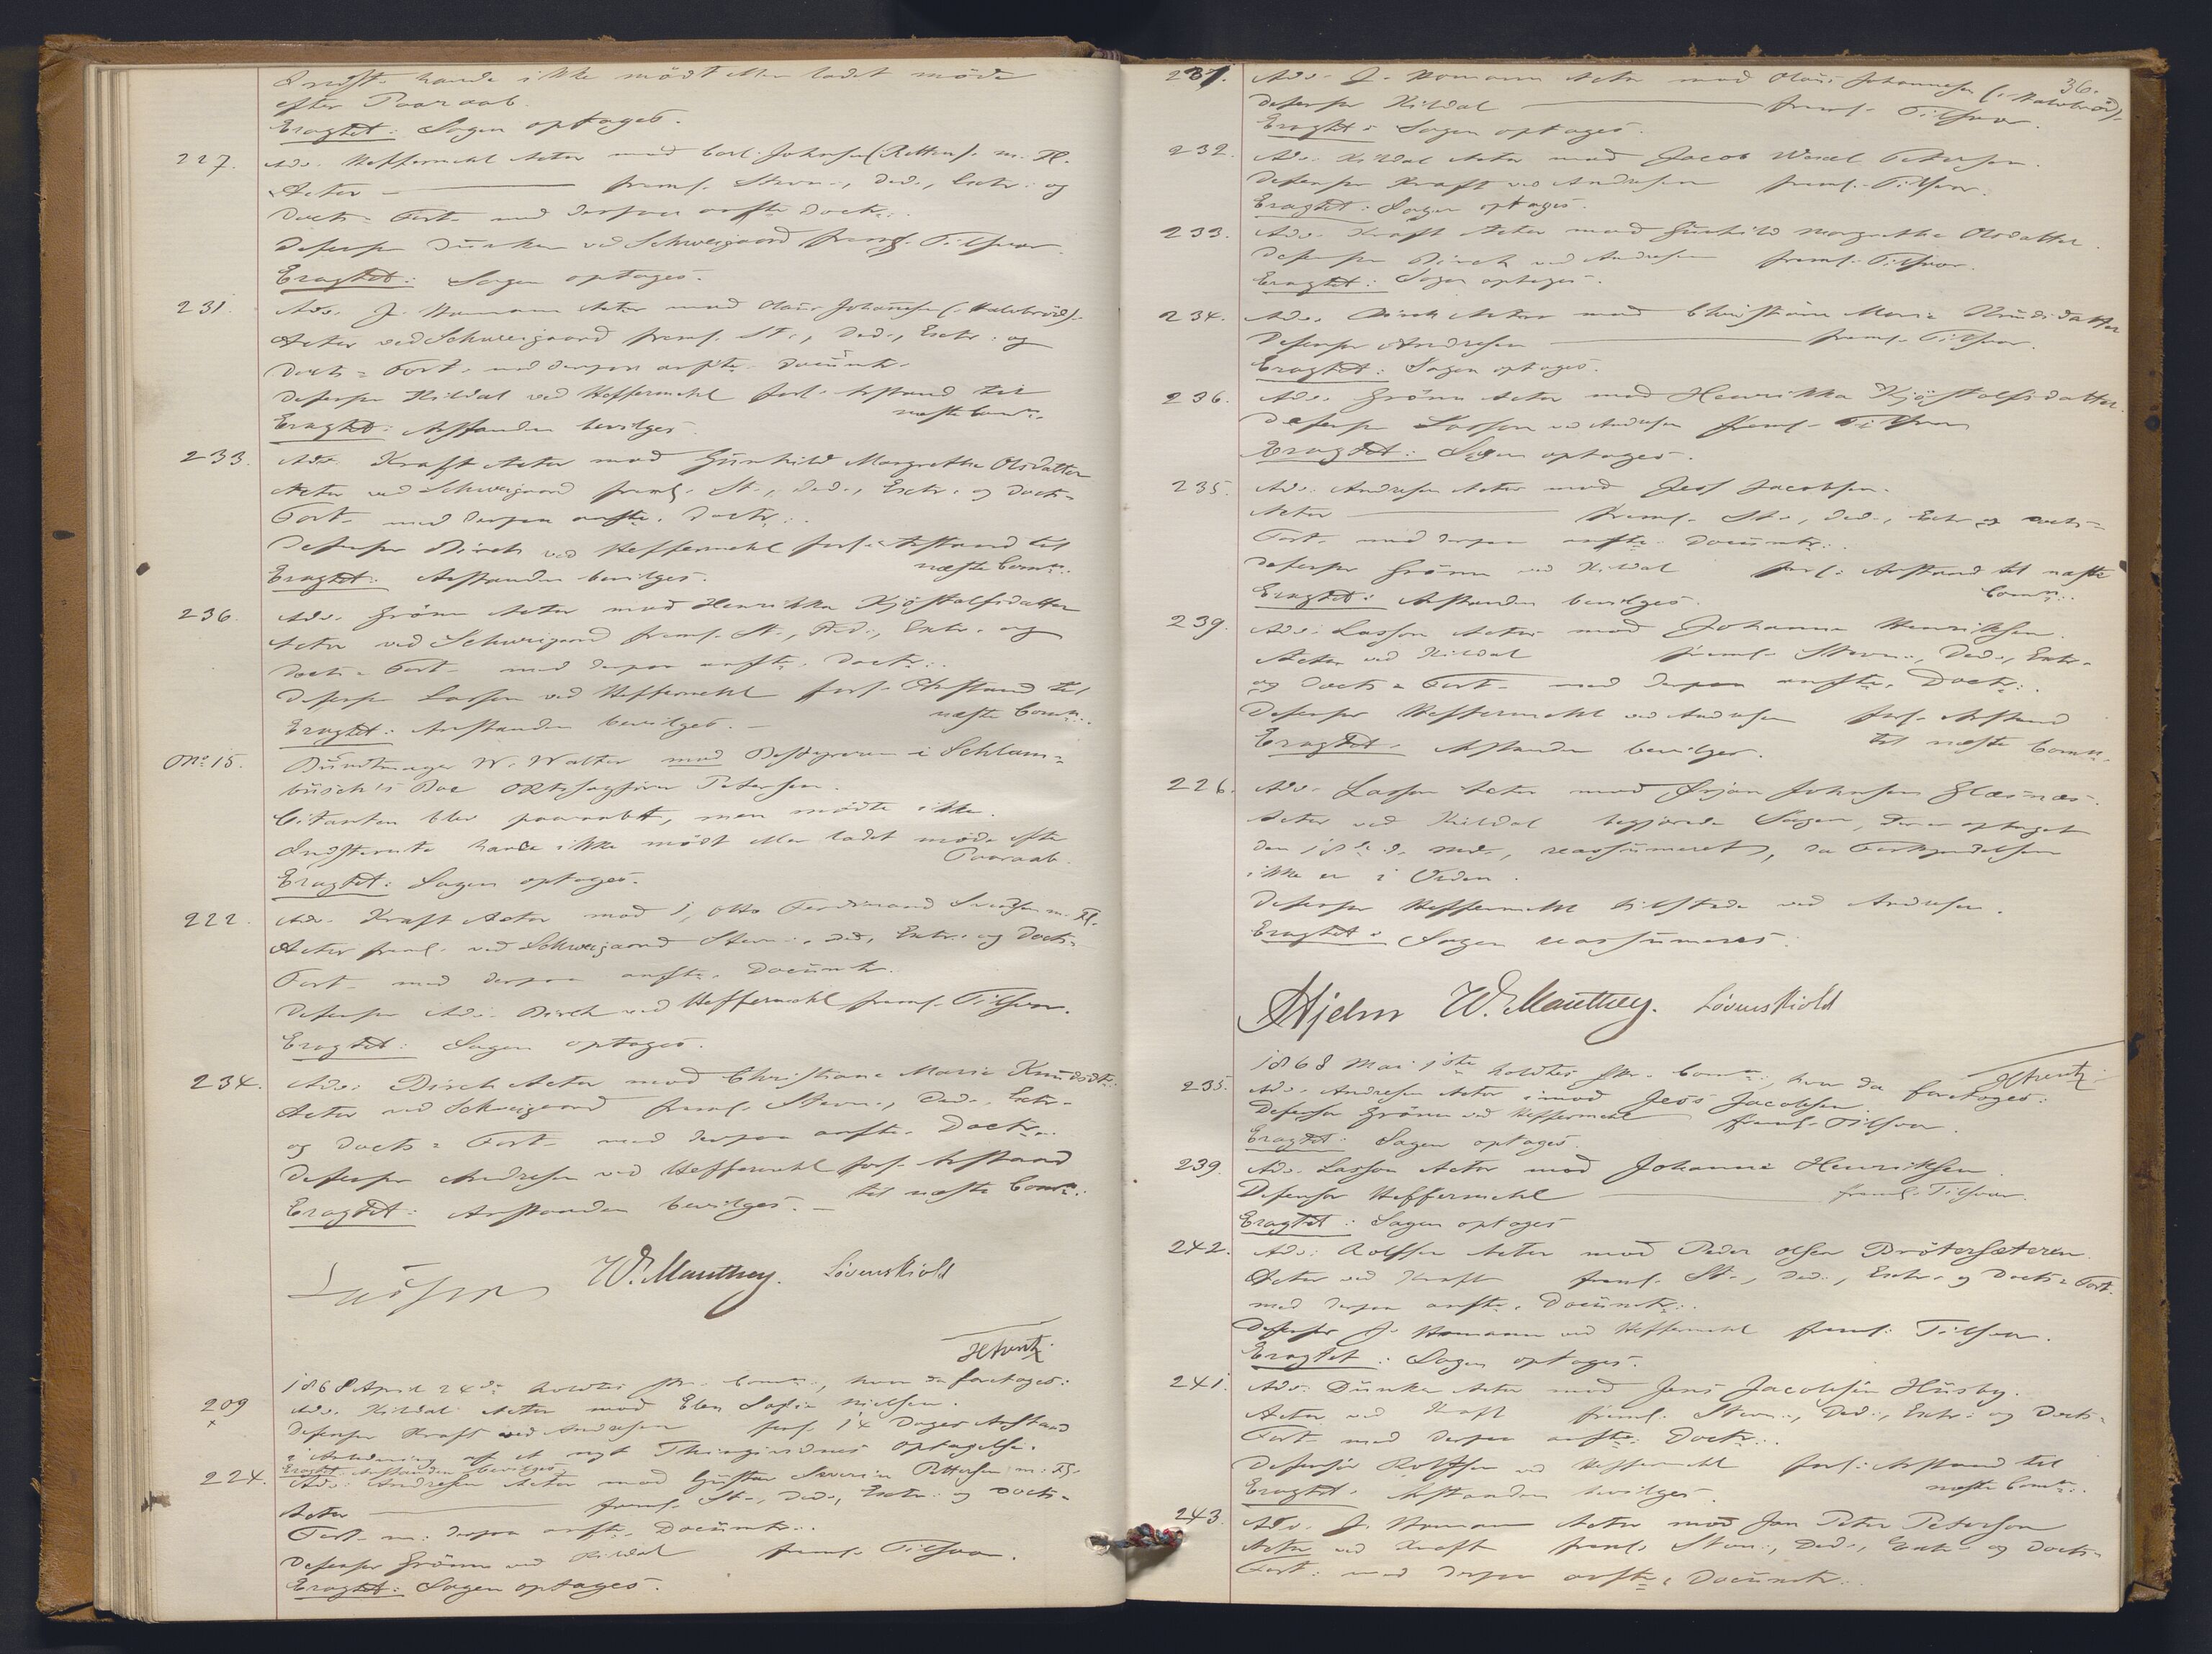 Indst. havde ikke mödt eller ladet möde
efter Paaraab.
Eragtet: Sagen optages.
227. Adv. Heffermehl Actor mod Carl Johnsen (Retten). m. Fl.
Actor — freml. Stevn., Ded., Extr. og
Docts- Fort. med derpaa anfte Doctr.
Defensor Dunker ved Schweigaard freml. Tilsvar.
Eragtet: Sagen optages.
231. Adv. J. Homann Actor mod Olaus Johannesen (Halvbröd).
Actor ved Schweigaard freml. St., Ded., Extr. og
Docts- Fort. med derpaa anfte Documtr.
Defensor Kildal ved Heffermehl forl. Anstand til
næste Comn.
Eragtet: Anstanden bevilges.
233. Adv. Kraft Actor mod Gunhild Margrethe Olsdatter
Actor ved Schweigaard freml. St., Ded., Extr. og Docts-
Fort. med derpaa anfte. Doctr.
Defensor Birch ved Heffermehl forl. Anstand til
næste Comn.
Eragtet: Anstanden bevilges.
236. Adv. Grönn Actor mod Henrikka Kjöstolfsdatter
Actor ved Schweigaard freml. St., Ded., Extr. og
Docts- Fort. med derpaa anfte. Doctr.
Defensor Lasson ved Heffermehl forl. Anstand til
næste Comn.
Eragtet: Anstanden bevilges.
No 15. Buntmager W. Walter mod Bestyreren i Schlam-
busch's Boe Ovrtssagförer Petersen.
Citanten blev paaraabt, men mödte ikke.
Indstevnte havde ikke mödt eller ladet möde efter
Paaraab.
Eragtet: Sagen optages.
222. Adv. Kraft Actor mod 1, Otto Ferdinand Svendsen m. Fl.
Actor freml. ved Schweigaard Stevn., Ded., Extr. og Docts-
Fort. med derpaa anfte. Documtr.
Defensor Adv. Birch ved Heffermehl freml. Tilsvar.
Eragtet: Sagen optages.
234. Adv. Birch Actor mod Christiane Marie Knudsdtr.
Actor ved Schweigaard freml. Stevn., Ded., Extr.
og Docts- Fort. med derpaa anfte. Doctr.
Defensor Andresen ved Heffermehl forl. Anstand
til næste Comn.
Eragtet: Anstanden bevilges.
W. Manthey. Lövenskiold
1868 April 24de holdtes Comn., hvor da foretoges:
209 Adv. Kildal Actor mod Elen Sofie Nielsen.
x Defensor Kraft ved Andresen forl. 14 Dages Anstand
i Anledning af et nyt Thingsvidnes Optagelse.
Eragtet: Anstanden bevilges.
224. Adv. Andresen Actor mod Gustav Severin Pettersen m. Fl.
Actor — freml. St., Ded., Extr. og Docts-
Fort. m. derpaa anfte. Documtr.
Defensor Grönn ved Kildal freml. Tilsvar.
Eragtet: Sagen optages.
36.
231. Adv. J. Homann Actor mod Olaus Johannesen (Halvbröd).
Defensor Kildal — freml. Tilsvar.
Eragtet: Sagen optages.
232. Adv. Kildal Actor mod Jacob Wessel Petersen.
Defensor Kraft ved Andresen freml. Tilsvar.
Eragtet: Sagen optages.
233. Adv. Kraft Actor mod Gunhild Margrethe Olsdatter.
Defensor Birch ved Andresen freml. Tilsvar.
Eragtet: Sagen optages.
234. Adv. Birch Actor mod Christiane Marie Knudsdatter
Defensor Andresen — freml. Tilsvar.
Eragtet: Sagen optages.
236. Adv. Grönn Actor mod Henrikka Kjöstolfsdatter.
Defensor Lasson ved Andresen freml. Tilsvar
Eragtet: Sagen optages.
235. Adv. Andresen Actor mod Jess Jacobsen.
Actor — freml. St., Ded., Extr. og Docts-
Fort. med derpaa anfte. Documtr.
Defensor Grönn ved Kildal forl. Anstand til næste
Comn.
Eragtet: Anstanden bevilges.
239. Adv. Lasson Actor mod Johanne Henriksen.
Actor ved Kildal freml. Stevn., Ded., Extr.
og Docts- Fort. med derpaa anfte. Doctr.
Defensor Heffermehl ved Andresen forl. Anstand
til næste Comn.
Eragtet: Anstanden bevilges.
226. Adv. Lasson Actor mod Örjan Johnsen Glæsnæs.
Actor ved Kildal begjærede Sagen, der er optaget
den 18de d. Md., reassumeret, da Forkyndelsen
ikke er i Orden.
Defensor Heffermehl tilstede ved Andresen.
Eragtet: Sagen reassumeres.
Hjelm W. Manthey. Lövenskiold
1868 Mai 1ste holdtes Comn., hvor da foretoges:
235. Adv. Andresen Actor imod Jess Jacobsen.
Defensor Grönn ved Heffermehl freml. Tilsvar.
Eragtet: Sagen optages.
239. Adv. Lasson Actor mod Johanne Henriksen.
Defensor Heffermehl — freml. Tilsvar.
Eragtet: Sagen optages
242. Adv. Rolfsen Actor mod Peder Olsen Brötersæteren.
Actor ved Kraft freml. St., Ded., Extr. og Docts- Fort.
med derpaa anfte. Documtr.
Defensor J. Homann ved Heffermehl freml. Tilsvar.
Eragtet: Sagen optages.
241. Adv. Dunker Actor mod Jens Jacobsen Husby.
Actor ved Kraft freml. Stevn., Ded., Extr. og Docts-
Fort. med derpaa anfte. Doctr.
Defensor Rolfsen ved Heffermehl forl. Anstand til
næste Comn.
Eragtet: Anstanden bevilges.
243. Adv. J. Homann Actor mod Jan Peter Peterson
Actor ved Kraft freml. Stevn., Ded., Extr. og Docts-
Fort. med derpaa anfte. Documtr.